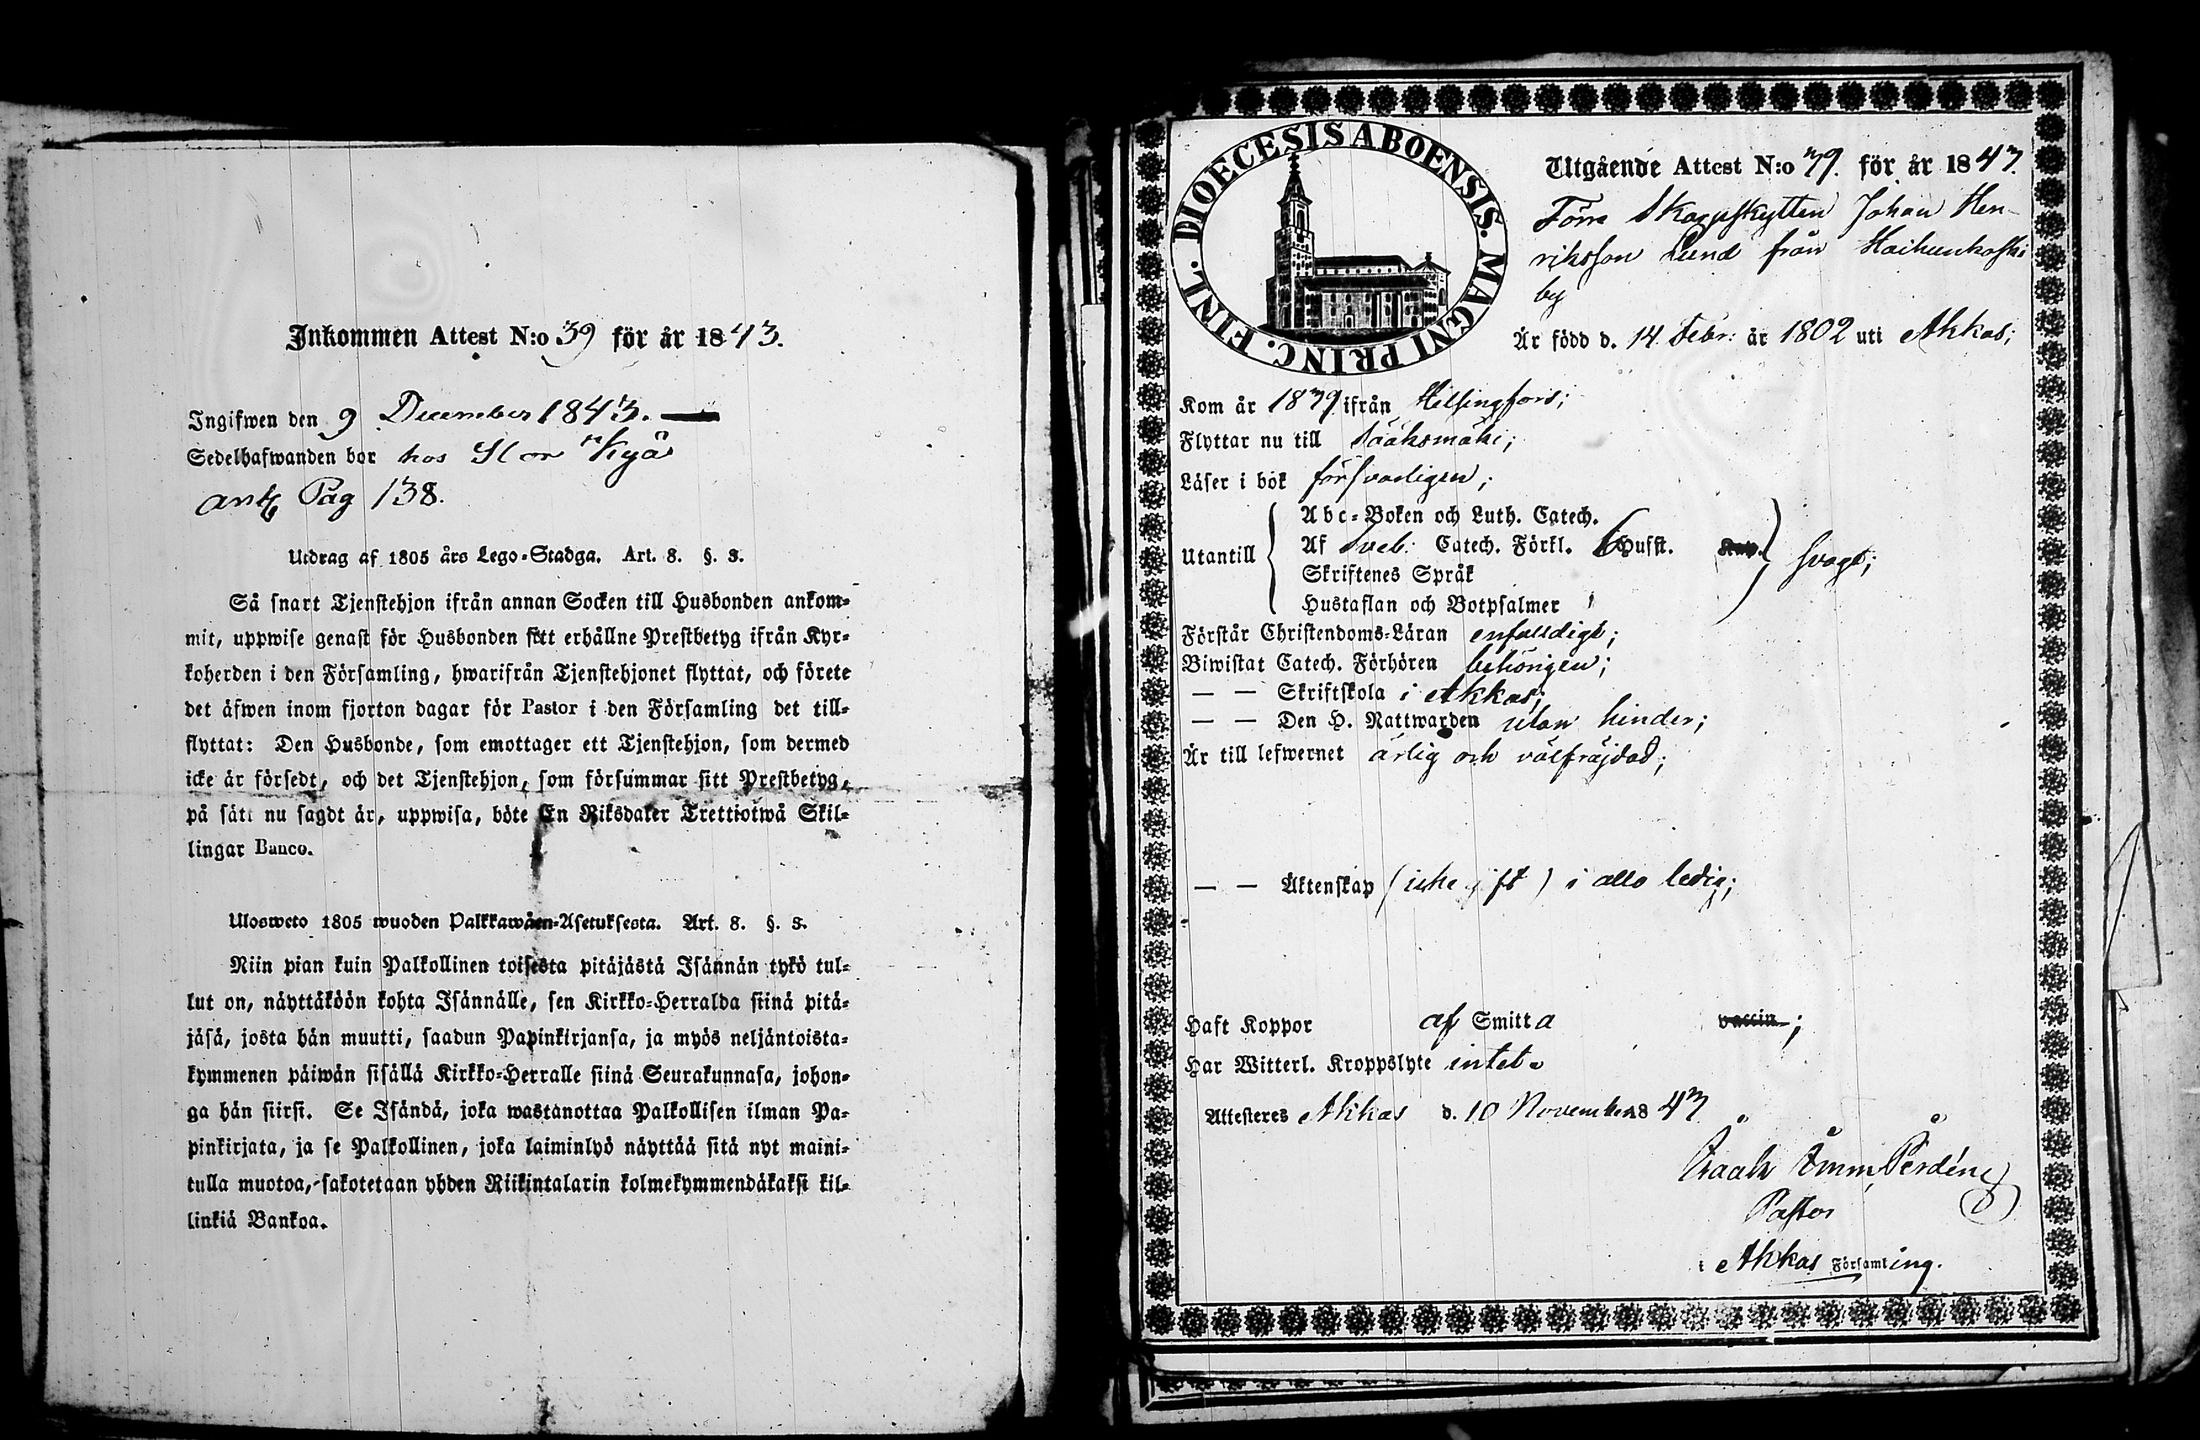 Inkommen Attest N:o 39 för år 1843.
Ingifwen den 9 December 1843.
Sedelhafwanden bor hos Stor Kyä
Pag 138.
Utdrag af 1805 års Lego-Stadga. Art. 8. §. 3.
Så snart Tjenstehjon ifrån annan Socken till Husbonden ankom-
mit, uppwise genast för Husbonden sitt erhållne Prestbetyg ifrån Kyr-
koherden i den Församling, hwarifrån Tjenstehjonet flyttat, och förete
det äfwen inom fjorton dagar för Pastor i den Församling det till-
flyttat: Den Husbonde, som emottager ett Tjenstehjon, som dermed
icke är försedt, och det Tjenstehjon, som försummar sitt Prestbetyg,
på sätt nu sagdt är, uppwisa, böte En Riksdaler Trettiotwå Skil-
lingar Banco.
Ulosweto 1805 wuoden Palkkawäen-Asetuksesta. Art. 8. §. 3.
Niin pian kuin Palkollinen toisesta pitäjästä Isännän tykö tul-
lut on, näyttäköön kohta Isännälle, sen Kirkko-Herralda siinä pitä-
jäsä, josta hän muutti, saadun Papinkirjansa, ja myös neljäntoista-
kymmenen päiwän sisällä Kirkko-Herralle siinä Seurakunnasa, johon-
ga hän siirsi. Se Isändä, joka wastanottaa Palkollisen ilman Pa-
pinkirjata, ja se Palkollinen, joka laiminlyö näyttää sitä nyt maini-
tulla muotoa, sakotetaan yhden Riikintalarin kolmekymmendäkaksi kil-
linkiä Bankoa.
DIOECESIS ABOENSIS. MAGNI PRINC. FINL.
Utgående Attest N:o 39. för år 1843.
Förra Skarpskytten Johan Hen-
riksson Lund från Haihunkoski
by
Är född d. 14 Febr: år 1802 uti Akkas;
Kom år 1839 ifrån Helsingfors;
Flyttar nu till Sääksmäki;
Läser i bok försvarligen;
Utantill
Abc-Boken och Luth. Catech.
Af Sveb: Catech. Förkl. Hufst. svagt;
Skriftenes Språk
Hustaflan och Botpsalmer
Förstår Christendoms-Läran enfaldigt;
Biwistat Catech. Förhören behörigen;
— — Skriftskola i Akkas;
— — Den H. Nattwarden utan hinder;
Är till lefwernet ärlig och välfräjdad;
— — Äktenskap (icke gift) i allo ledig;
Haft Koppor af Smitta vaccin;
Har Witterl. Kroppslyte intet.
Attesteres Akkas d. 10 November 1843
Isaak Emm. Perdén
Pastor
i Akkas Församling.